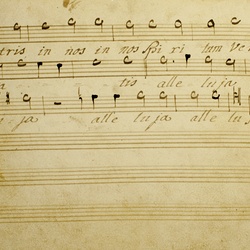 tris in nos in nos spi ri tum Ve
a tis alle luja
ja alle luja alle lu